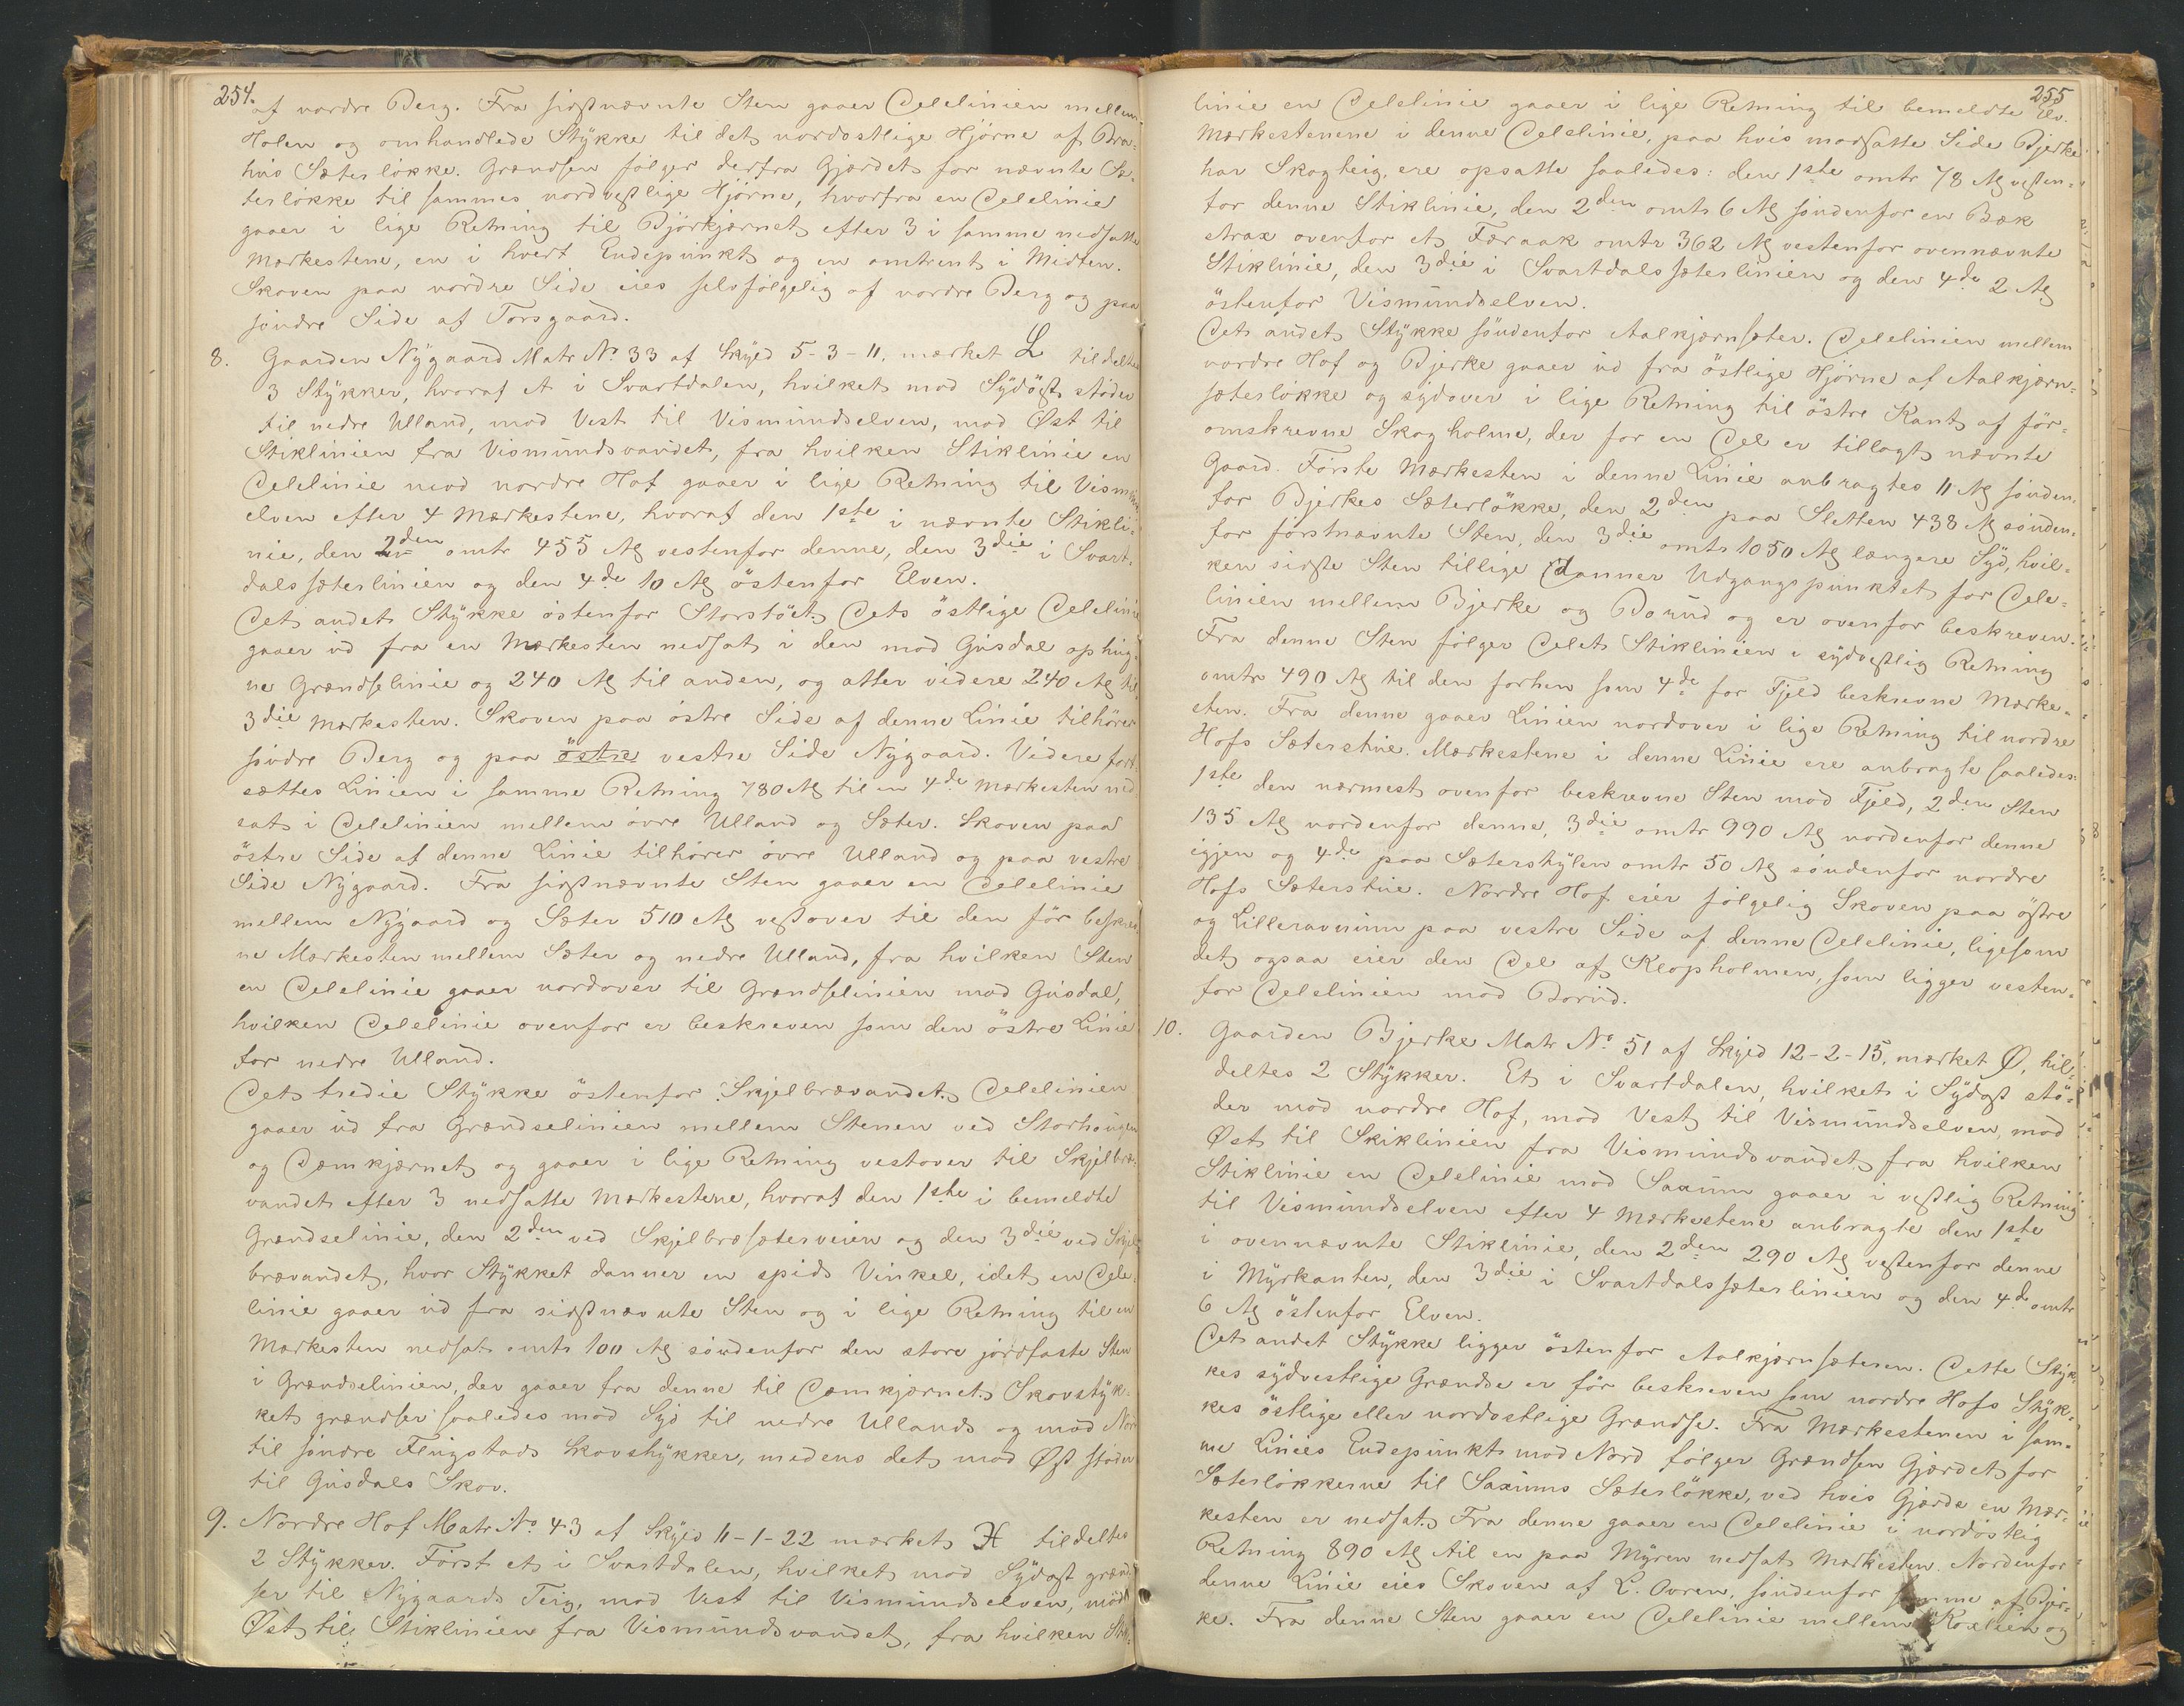 254.
af nordre Berg. Fra sidstnævnte Sten gaaer Delelinien mellem
Holen og omhandlede Stykke til det nordostlige Hjørne af Bra-
hus Sæterløkke. Grændsen følger derfra Gjærdet for nævnte Sæ-
terløkke til sammes nordvestlige Hjørne, hvorfra en Delelinie
gaaer i lige Retning til Djørkjærnet efter 3 i samme nedsatte
Mærkestene, en i hvert Endepunkt og en omtrent i Midten.
Skoven paa nordre Side eies selvfølgelig af nordre Berg og paa
søndre Side af Torsgaard.
8. Gaarden Nygaard Matr No 33 af Skyld 5-3-11, mærket L tildeltes
3 Stykker, hvoraf et i Svartdalen, hvilket mod Sydøst støder
til nedre Ulland, mod Vest til Vismundselven, mod Øst til
Stiklinien fra Vismundsvandet, fra hvilken Stiklinie en
Delelinie mod nordre Hof gaaer i lige Retning til Vismunds-
elven efter 4 Mærkestene, hvoraf den 1ste i nævnte Stikli-
nie, den 2den omtr 455 Al vestenfor denne, den 3die i Svart-
dalssæterlinien og den 4de 10 Al østenfor Elven.
Det andet Stykke østenfor Storstøet. Dets østlige Delelinie
gaaer ud fra en Mærkesten nedsat i den mod Gusdal ophug-
ne Grændselinie og 240 Al til anden, og atter videre 240 Al til
3die Mærkesten. Skoven paa østre Side af denne Linie tilhører
søndre Berg og paa østre vestre Side Nygaard. Videre fort-
sættes Linien i samme Retning 780 Al til en 4de Mærkesten ned-
sat i Delelinien mellem øvre Ulland og Sæter. Skoven paa
østre Side af denne Linie tilhører øvre Ulland og paa vestre
Side Nygaard. Fra sidstnævnte Sten gaaer en Delelinie
mellem Nygaard og Sæter 510 Al vestover til den før beskrev-
ne Mærkesten mellem Sæter og nedre Ulland, fra hvilken Sten
en Delelinie gaaer nordover til Grændselinien mod Gusdal,
hvilken Delelinie ovenfor er beskreven som den østre Linie
for nedre Ulland.
Det tredie Stykke østenfor Skjelbrævandet. Delelinien
gaaer ud fra Grændselinien mellem Stenen ved Storhaugen
og Damkjærnet og gaaer i lige Retning vestover til Skjelbræ-
vandet efter 3 nedsatte Mærkestene, hvoraf den 1ste i bemeldte
Grændselinie, den 2den ved Skjelbræsæterveien og den 3die ved Skjel-
brævandet, hvor Stykket danner en spids Vinkel, idet en Dele-
linie gaaer ud fra sidstnævnte Sten og i lige Retning til en
Mærkesten nedsat omtr 100 Al søndenfor den store jordfaste Sten
i Grændselinien, der gaaer fra denne til Damkjærnet. Skovstyk-
ket grændser saaledes mod Syd til nedre Ullands og mod Nord
til søndre Flugstads Skovstykker, medens det mod Øst støder
til Gusdals Skov.
9. Nordre Hof Matr No 43 af Skyld 11-1-22 mærket H tildeltes
2 Stykker. Først et i Svartdalen, hvilket mod Sydøst grænd-
ser til Nygaards Teig, mod Vest til Vismundselven, mod
Øst til Stiklinien fra Vismundsvandet, fra hvilken Stik-
255
linie en Delelinie gaaer i lige Retning til bemeldte Elv.
Mærkestenene i denne Delelinie, paa hvis modsatte Side Bjerke
har Skogteig, ere opsatte saaledes: den 1ste omtr 78 Al vesten-
for denne Stiklinie, den 2den omtr 6 Al søndenfor en Bæk
strax ovenfor et Færaak omtr 362 Al vestenfor ovennævnte
Stiklinie, den 3die i Svartdalssæterlinien og den 4de 2 Al
østenfor Vismundselven.
Det andet Stykke søndenfor Aalkjærnsæter. Delelinien mellem
nordre Hof og Bjerke gaaer ud fra østlige Hjørne af Aalkjærn-
sæterløkke og sydover i lige Retning til østre Kant af før-
omskrevne Skogholme, der for en Del er tillagt nævnte
Gaard. Første Mærkesten i denne Linie anbragtes 11 Al sønden-
for Bjerkes Sæterløkke, den 2den paa Sletten 438 Al sønden-
for førstnævnte Sten, den 3die omtr 1050 Al længere Syd, hvil-
ken sidste Sten tillige danner Udgangspunktet for Dele-
linien mellem Bjerke og Borud og er ovenfor beskreven.
Fra denne Sten følger Delet Stiklinien i sydvestlig Retning
omtr 490 Al til den forhen som 4de for Fjeld beskrevne Mærke-
sten. Fra denne gaaer Linien nordover i lige Retning til nordre
Hofs Sæterstue. Mærkestene i denne Linie ere anbragte saaledes:
1ste den nærmest ovenfor beskrevne Sten mod Fjeld, 2den Sten
135 Al nordenfor denne, 3die omtr 990 Al nordenfor denne
igjen og 4de paa Sæterhylen omtr 50 Al søndenfor nordre
Hofs Sæterstue. Nordre Hof eier følgelig Skoven paa østre
og Lilleravnum paa vestre Side af denne Delelinie, ligesom
det ogsaa eier den Del af Klopholmen, som ligger vesten-
for Delelinien mod Borud.
10. Gaarden Bjerke Matr No 51 af Skyld 12-2-15, mærket Ø, til-
deltes 2 Stykker. Et i Svartdalen, hvilket i Sydøst stø-
der mod nordre Hof, mod Vest til Vismundselven, mod
Øst til Skiklinien fra Vismundsvandet, fra hvilken
Stiklinie en Delelinie mod Saxum gaaer i vestlig Retning
til Vismundselven efter 4 Mærkestene anbragte den 1ste
i ovennævnte Stiklinie, den 2den 290 Al vestenfor denne
i Myrkanten, den 3die i Svartdalssæterlinien og den 4de omtr
6 Al østenfor Elven.
Det andet Stykke ligger østenfor Aalkjærnsæteren. Dette Styk-
kes sydvestlige Grændse er før beskreven som nordre Hofs Styk-
kes østlige eller nordostlige Grændse. Fra Mærkestenen i sam-
me Linies Endepunkt mod Nord følger Grændsen Gjærdet for
Sæterløkkerne til Saxums Sæterløkke, ved hvis Gjærde en Mær-
kesten er nedsat. Fra denne gaaer en Delelinie i nordøstlig
Retning 890 Al til en paa Myren nedsat Mærkesten. Nordenfor
denne Linie eies Skoven af L. Ovren, søndenfor samme af Bjer-
ke. Fra denne Sten gaaer en Delelinie mellem Roxlien og